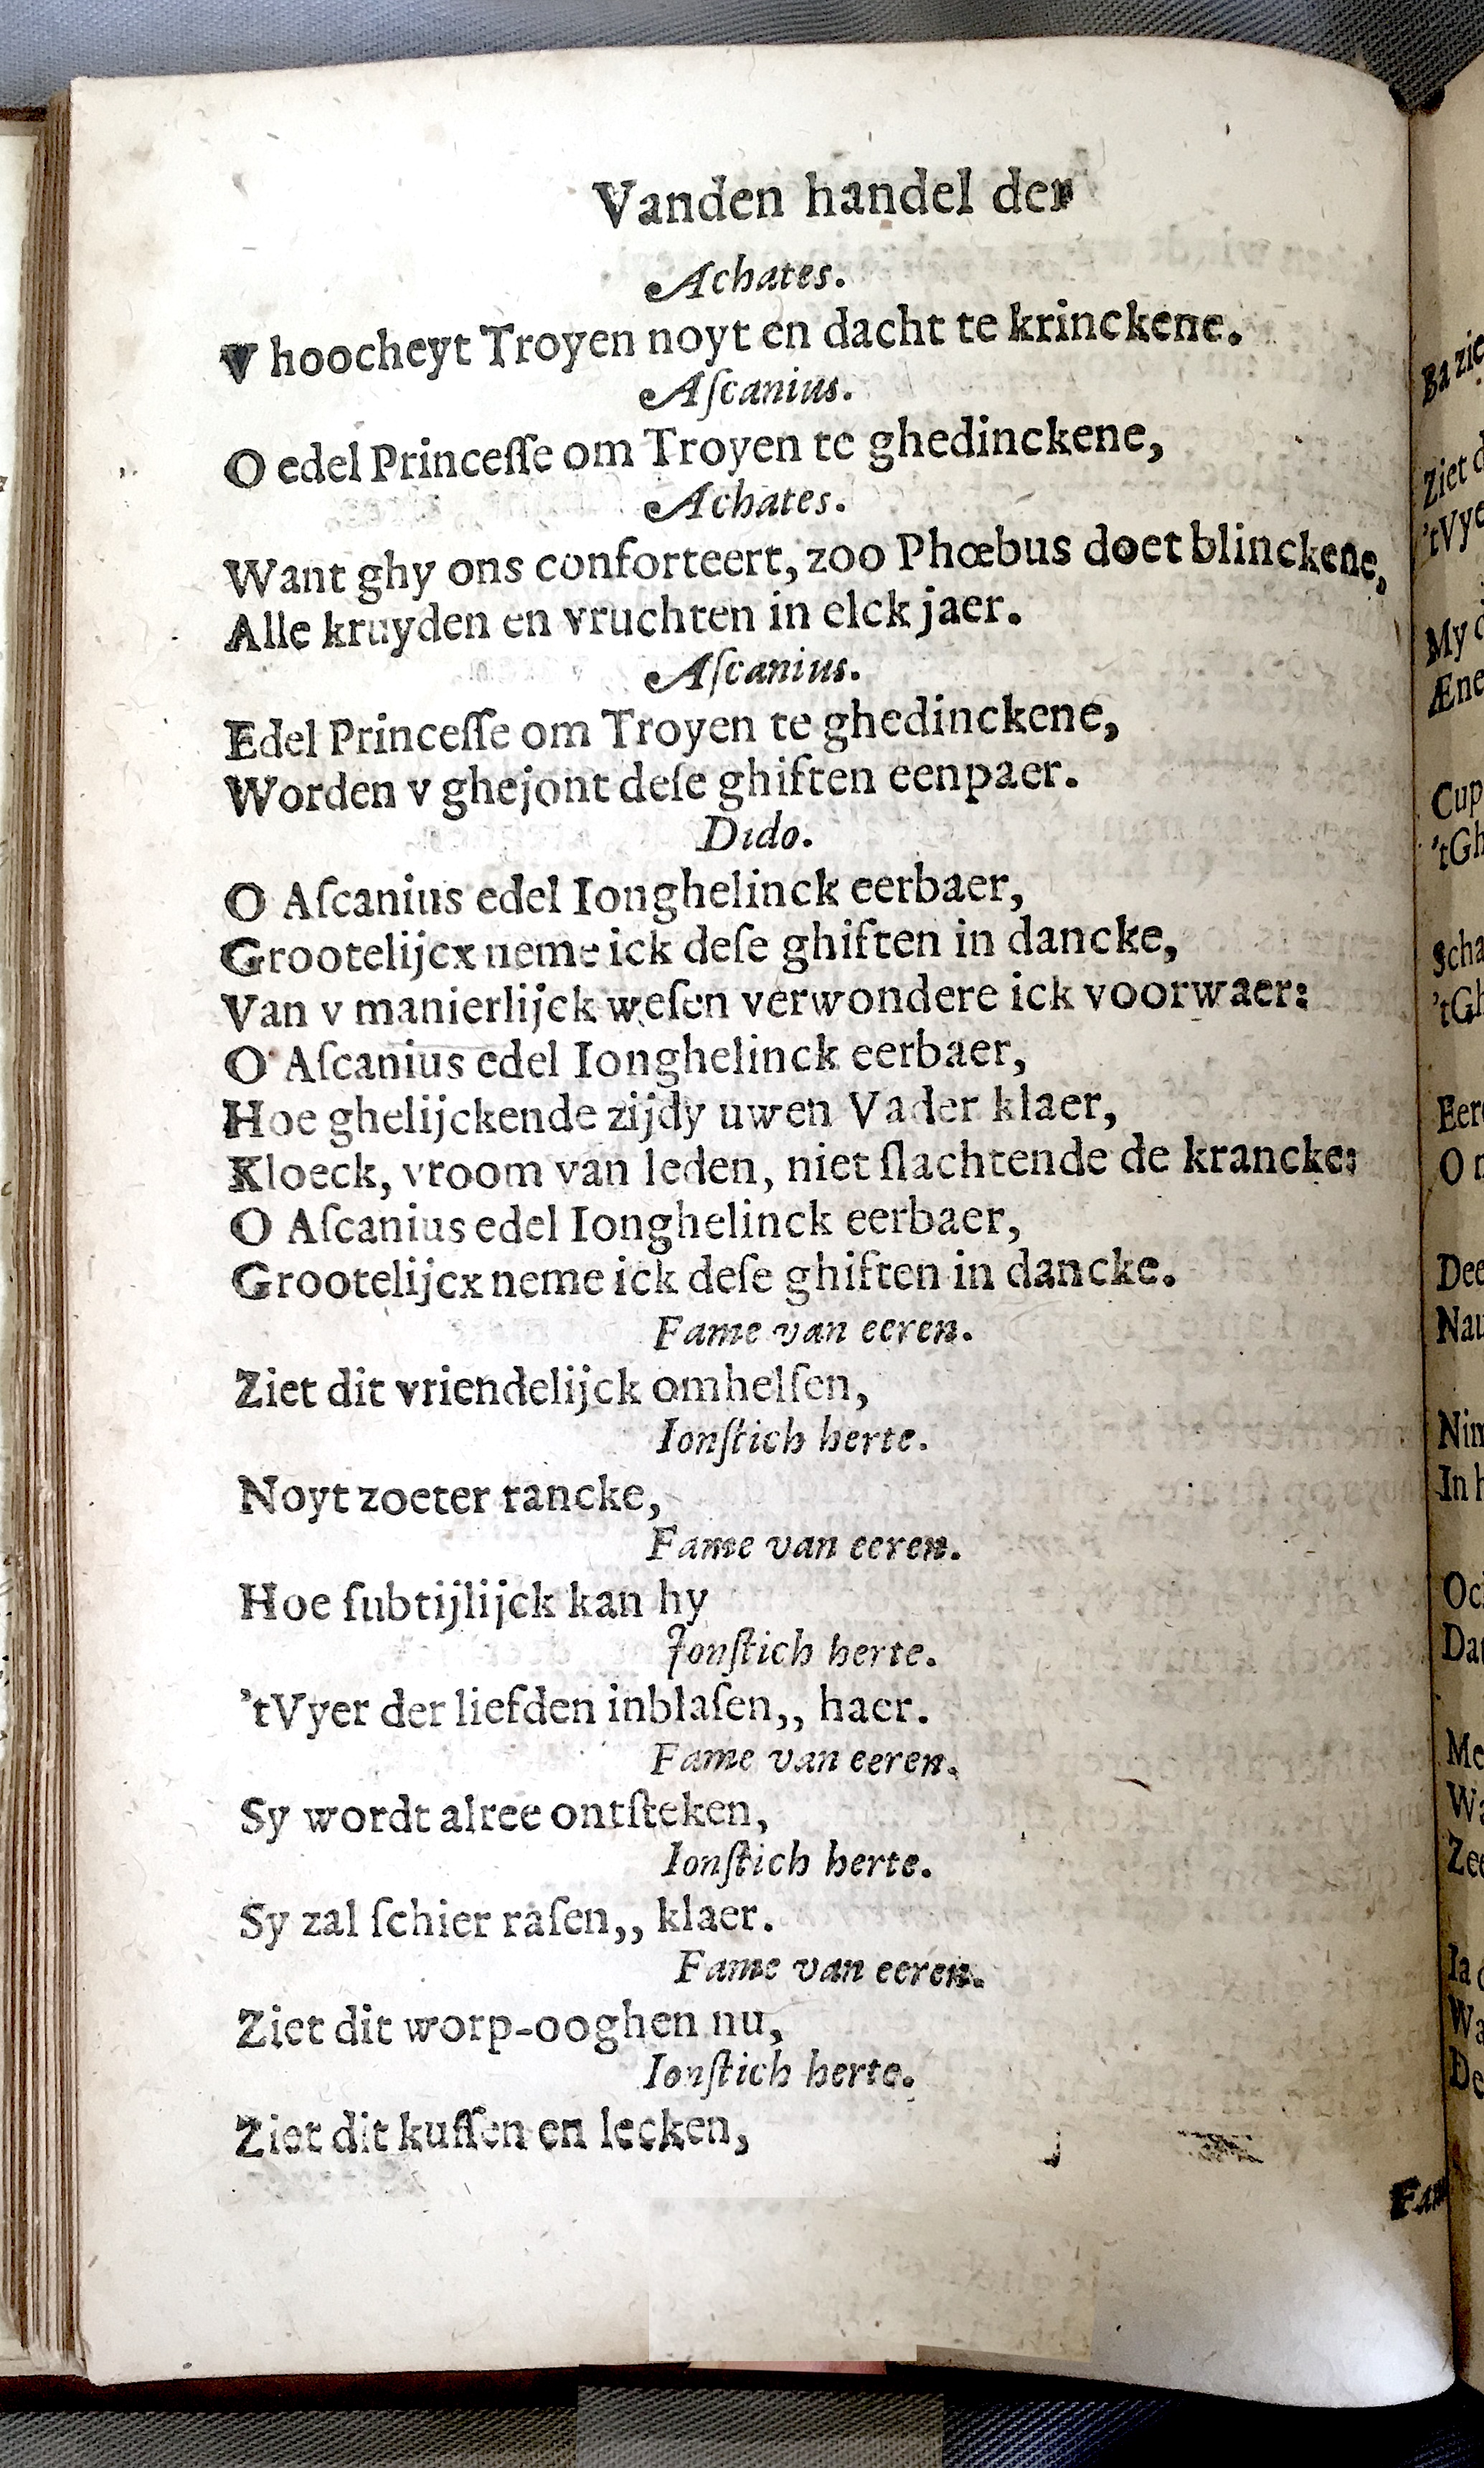 Vanden handel der
Achates.
V hoocheyt Troyen noyt en dacht te krinckene.
Aſcanius.
O edel Princeſſe om Troyen te ghedinckene,
Achates.
Want ghy ons conforteert, zoo Phœbus doet blinckene,
Alle kruyden en vruchten in elck jaer.
Aſcanius.
Edel Princeſſe om Troyen te ghedinckene,
Worden v ghejont deſe ghiften eenpaer.
Dido.
O Aſcanius edel Ionghelinck eerbaer,
Grootelijcx neme ick deſe ghiften in dancke,
Van v manierlijck weſen verwondere ick voorwaer:
O Aſcanius edel Ionghelinck eerbaer,
Hoe ghelijckende zijdy uwen Vader klaer,
Kloeck, vroom van leden, niet ſlachtende de krancke:
O Aſcanius edel Ionghelinck eerbaer,
Grootelijcx neme ick deſe ghiften in dancke.
Fame van eeren.
Ziet dit vriendelijck omhelſen,
Ionſtich herte.
Noyt zoeter rancke,
Fame van eeren.
Hoe ſubtijlijck kan hy
Jonſtich herte.
'tVyer der liefden inblaſen,, haer.
Fame van eeren.
Sy wordt alree ontſteken,
Ionſtich herte.
Sy zal ſchier raſen,, klaer.
Fame van eeren.
Ziet dit worp-ooghen nu,
Ionſtich herte.
Ziet dit kuſſen en lecken,
Fam